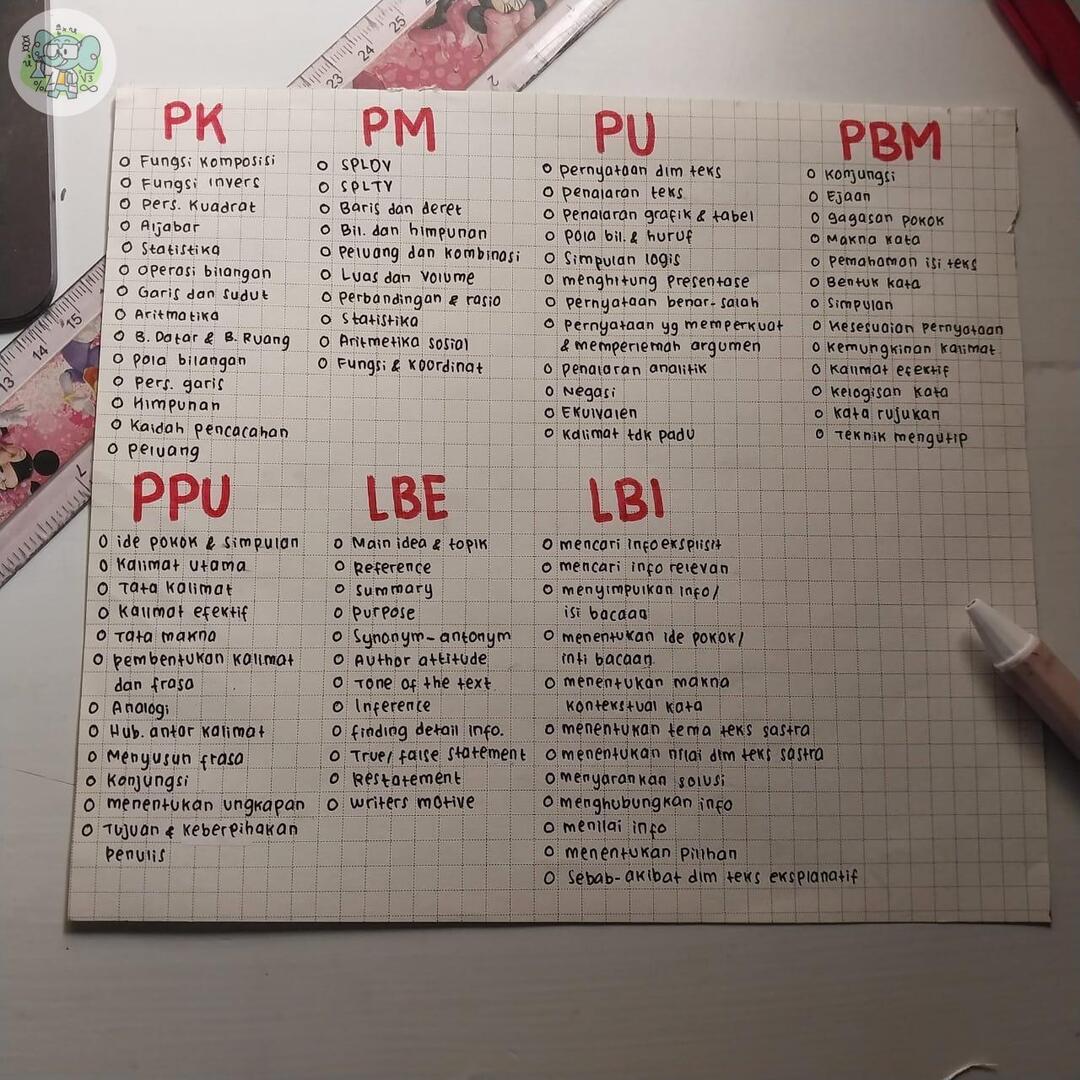 PK
Fungsi Komposisi
Fungsi Invers
Pers. Kuadrat
Aljabar
Statistika
Operasi bilangan
Garis dan Sudut
Aritmatika
B. Datar & B. Ruang
Pola bilangan
Pers. garis
Himpunan
Kaidah pencacahan
Peluang
PM
SPLDV
SPLTV
Baris dan deret
Bil. dan himpunan
Peluang dan kombinasi
Luas dan volume
Perbandingan & rasio
Statistika
Aritmetika sosial
Fungsi & Koordinat
PU
Pernyataan dlm teks
Penalaran teks
Penalaran grafik & tabel
Pola bil. & huruf
Simpulan logis
menghitung Presentase
Pernyataan benar-salah
Pernyataan yg memperkuat
& memperlemah argumen
Penalaran analitik
Negasi
Ekuivalen
Kalimat tdk padu
PBM
Konjungsi
Ejaan
Gagasan pokok
Makna kata
Pemahaman isi teks
Bentuk kata
Simpulan
Kesesuaian Pernyataan
Kemungkinan Kalimat
Kalimat efektif
Kelogisan Kata
Kata rujukan
Teknik mengutip
PPU
ide pokok & simpulan
Kalimat Utama
Tata Kalimat
Kalimat efektif
Tata makna
Pembentukan Kalimat
dan frasa
Analogi
Hub. antar Kalimat
Menyusun frasa
Konjungsi
menentukan ungkapan
Tujuan & Keberpihakan
penulis
LBE
Main idea & topik
Reference
Summary
Purpose
Synonym-antonym
Author attitude
Tone of the text
Inference
finding detail info.
True/ false statement
Restatement
Writers motive
LBI
mencari info eksplisit
mencari info relevan
menyimpulkan info/
isi bacaan
menentukan ide pokok/
inti bacaan
menentukan makna
Kontekstual kata
menentukan tema teks sastra
menentukan nilai dlm teks sastra
menyarankan solusi
menghubungkan info
menilai info
menentukan Pilihan
Sebab-akibat dlm teks eksplanatif
23
24
25
2
13
14
15
7